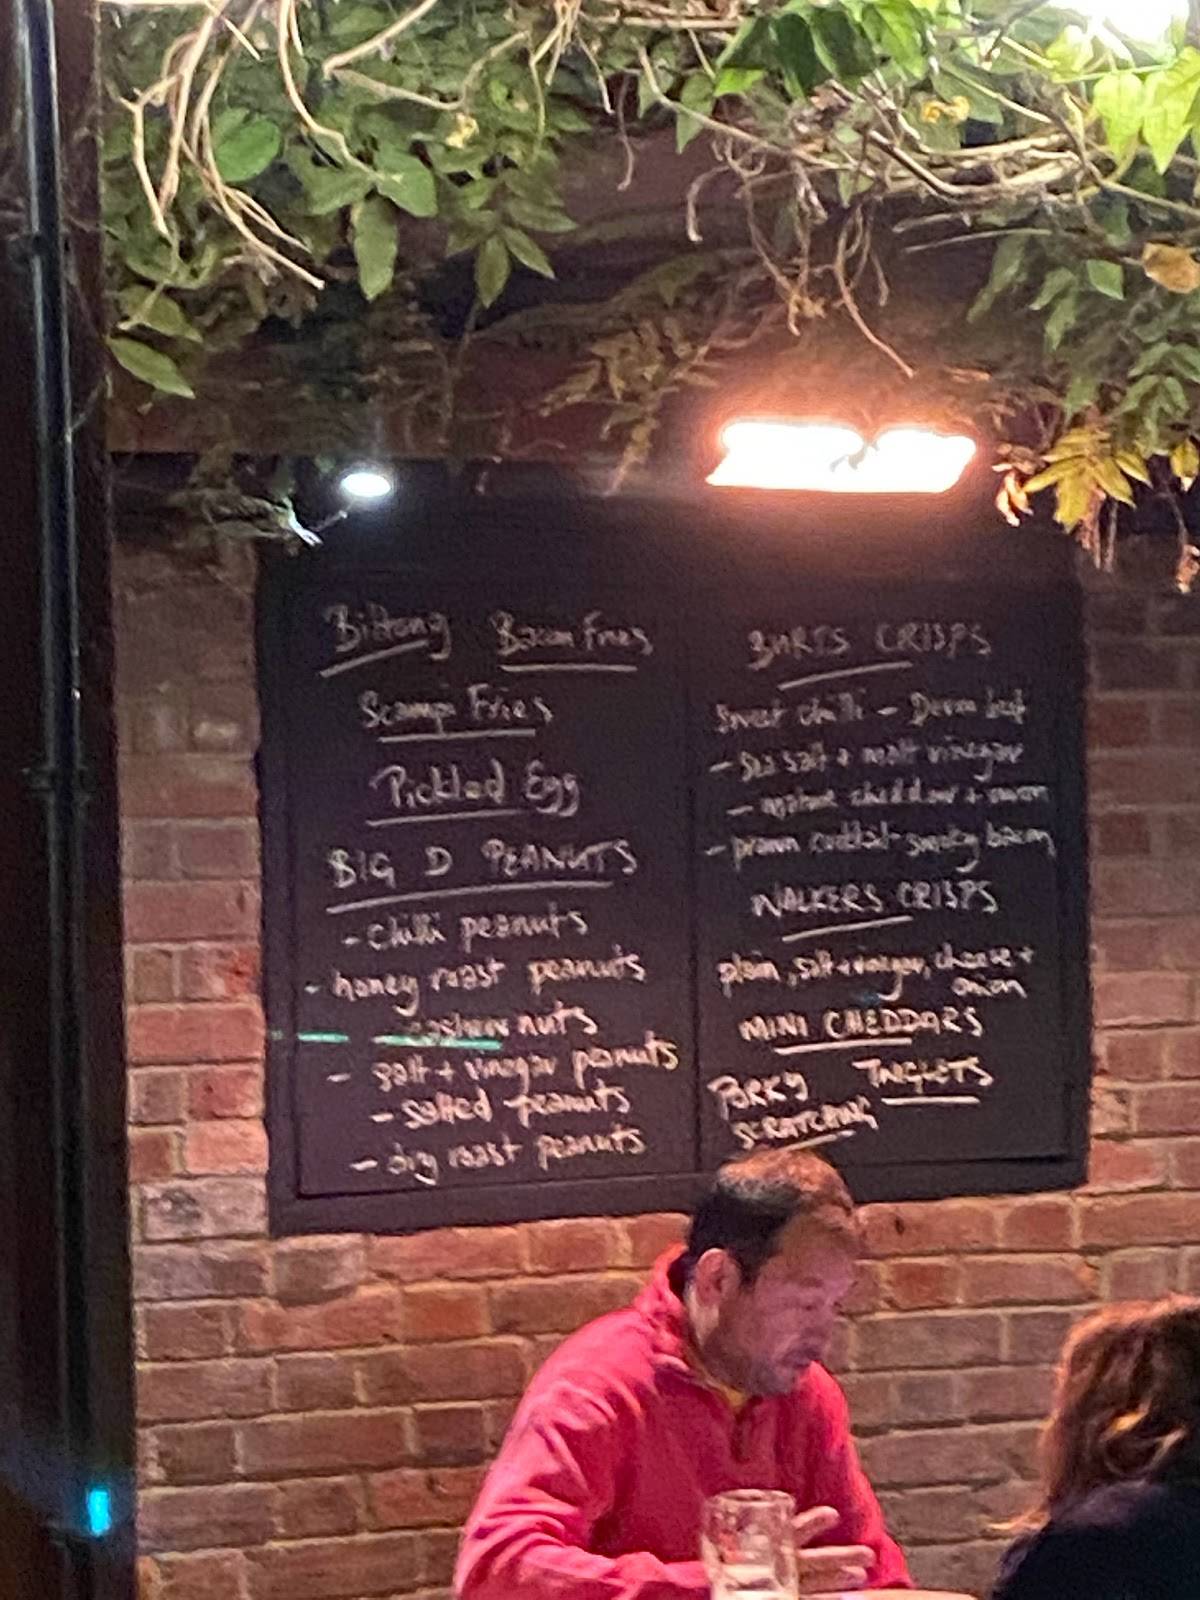 Biltong Bacon Fries
Scampi Fries
Pickled Egg
BIG D PEANUTS
- chilli peanuts
- honey roast peanuts
- cashew nuts
- salt + vinegar peanuts
- salted peanuts
- dry roast peanuts
BURTS CRISPS
Sweet chilli - Devon beef
- sea salt + malt vinegar
- mature cheddar + onion
- prawn cocktail - smoky bacon
WALKERS CRISPS
plain, salt + vinegar, cheese +
onion
MINI CHEDDARS
PORKY
SCRATCHING